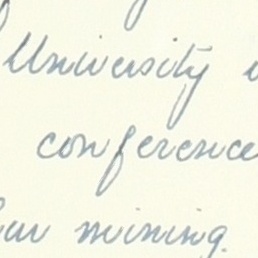 University
conference
mining.